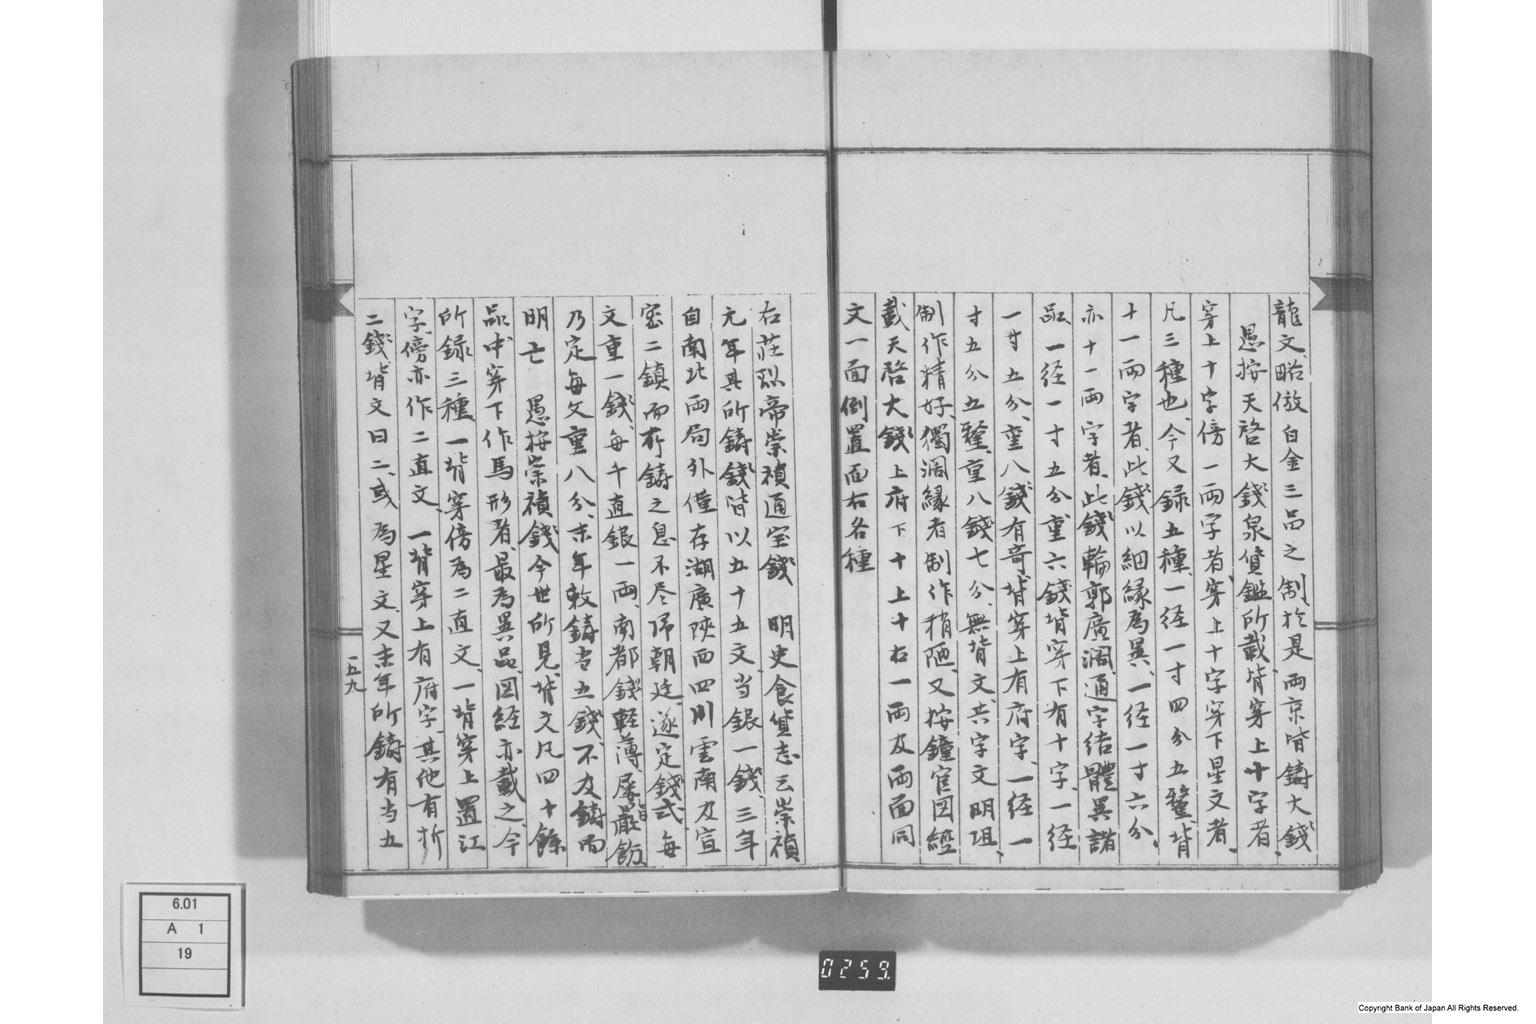 龍文略倣白金三品之制於是両京皆鋳大錢
愚按天啓大錢泉貨鑑所載背穿上十字者、
穿上十字傍一両字者、穿上十字穿下星文者、
凡三種也、今又録五種、一径一寸四分五釐、背
十一両字者、此錢以細緣為異、一径一寸六分、
亦十一両字者、此錢輪郭廣濶、通字結體異諸
品、一径一寸五分重六錢背穿下有十字、一径
一寸五分、重八錢有奇、背穿上有府字、一径一
寸五分五釐、重八錢七分、無背文、共字文明坦、
制作精好、獨濶緣者制作稍陋、又按鐘官図經
載天啓大錢上府下十上十右一両及両面同
文一面倒置面右各種
右莊烈帝崇禎通宝錢　明史食貨志云崇禎
元年其所鋳錢皆以五十五文当銀一錢、三年
自南北両局外僅存湖廣陝西四川雲南及宣
密二鎮而所鋳之息不尽歸朝廷、遂定錢式、毎
文重一錢、毎千直銀一両、南都錢輕薄、屢旨嚴飭
乃定毎文重八分、末年敕鋳当五錢、不及鋳而
明亡　愚按崇禎錢今世所見、背文凡四十餘
品、中穿下作馬形者最為異品、図経亦載之、今
所録三種、一背穿傍為二直文、一背穿上置江
字、傍亦作二直文、一背穿上有府字、其他有折
二錢背文曰二、或為星文、又末年所鋳有当五
一五九
6.01
A 1
19
0259
Copyright Bank of Japan All Rights Reserved.